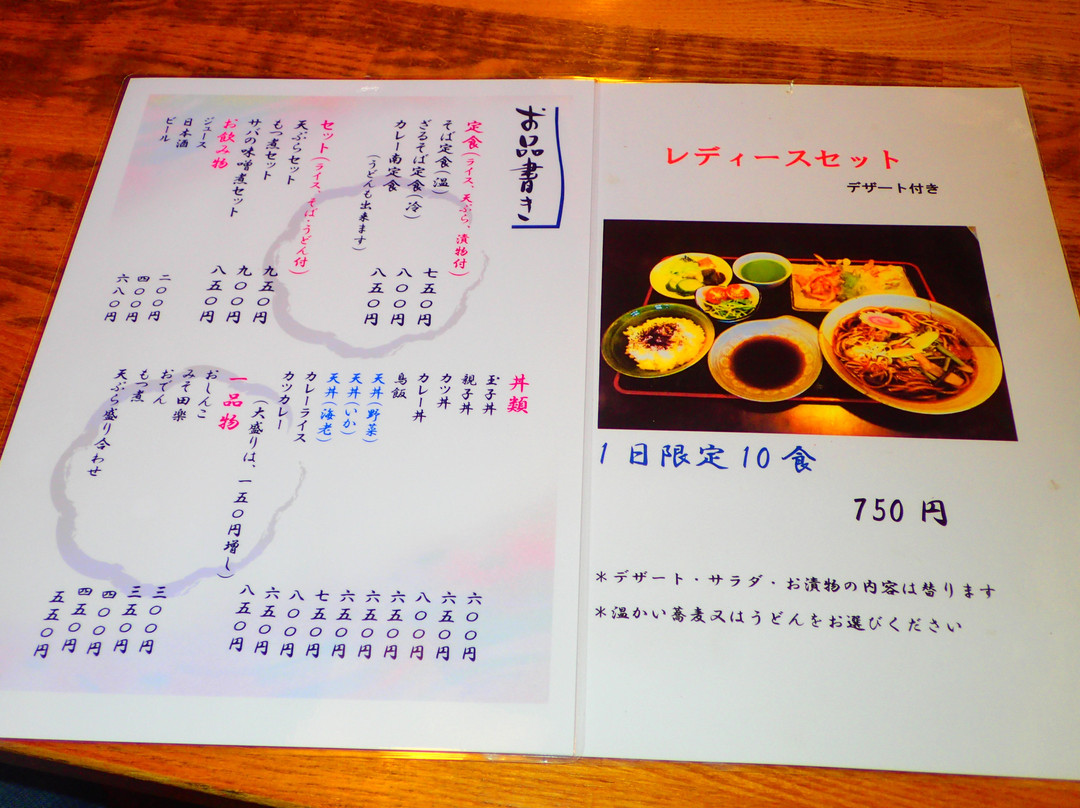 お品書き
定食(ライス、天ぷら、漬物付)
そば定食(温) 七五〇円
ざるそば定食(冷) 八〇〇円
カレー南定食 八五〇円
(うどんも出来ます)
セット(ライス、そば・うどん付)
天ぷらセット 九五〇円
もつ煮セット 九〇〇円
サバの味噌煮セット 八五〇円
お飲み物
ジュース 二〇〇円
日本酒 四〇〇円
ビール 六八〇円
丼類
玉子丼 六〇〇円
親子丼 六五〇円
カツ丼 八〇〇円
カレー丼 六五〇円
鳥飯 六五〇円
天丼(野菜) 六五〇円
天丼(いか) 七五〇円
天丼(海老) 八〇〇円
カレーライス 六五〇円
カツカレー 八五〇円
(大盛りは、一五〇円増し)
一品物
おしんこ 三〇〇円
みそ田楽 三五〇円
おでん 四〇〇円
もつ煮 四五〇円
天ぷら盛り合わせ 五五〇円
レディースセット
デザート付き
1日限定10食
750円
*デザート・サラダ・お漬物の内容は替ります
*温かい蕎麦又はうどんをお選びください